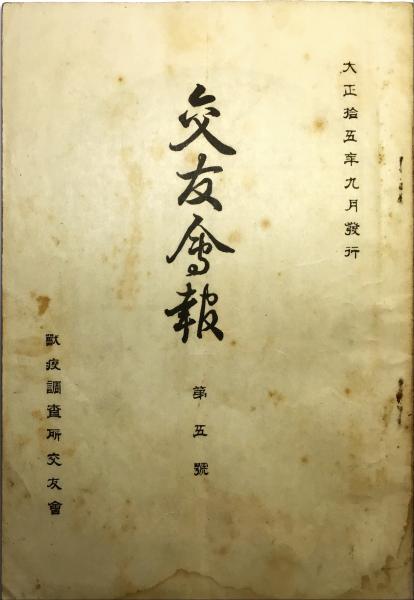 大正拾五年九月發行
交友會報
第五號
獸疫調査所交友會